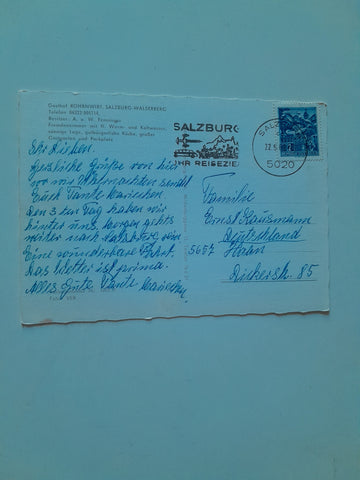 Gasthof ROHRNWIRT, SALZBURG-WALSERBERG
Telefon
Besitzer: A. u. W.
Fremdenzimmer mit fl. Warm- und Kaltwasser,
sonnige Lage, gutbürgerliche Küche, großer
Gastgarten und Parkplatz
SALZBURG
IHR REISEZIEL
22.5.
5020
Ihr Lieben.
Herzliche Grüße von hier
wo wir übernachten sendet
Euch Tante
Den 3 ten Tag haben wir
hinter uns, morgen gehts
weiter nach
Eine wunderbare Fahrt.
Das Wetter ist prima.
Alles Gute Tante
Familie
Ernst
Deutschland
5657 Haan
85